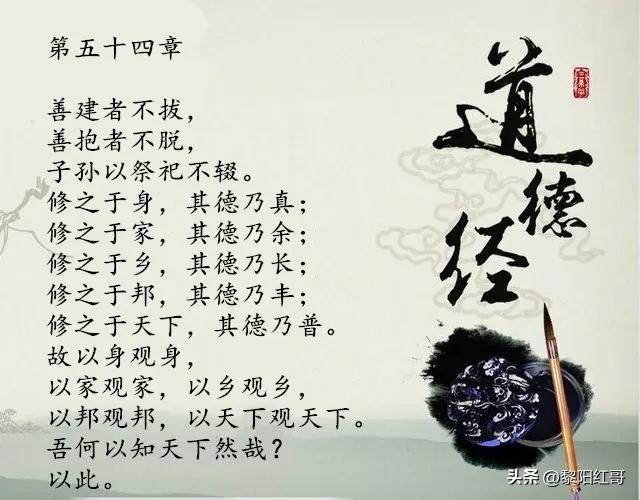 第五十四章
善建者不拔，
善抱者不脱，
子孙以祭祀不辍。
修之于身，其德乃真；
修之于家，其德乃余；
修之于乡，其德乃长；
修之于邦，其德乃丰；
修之于天下，其德乃普。
故以身观身，
以家观家，以乡观乡，
以邦观邦，以天下观天下。
吾何以知天下然哉？
以此。
道德经
头条 @黎阳红哥